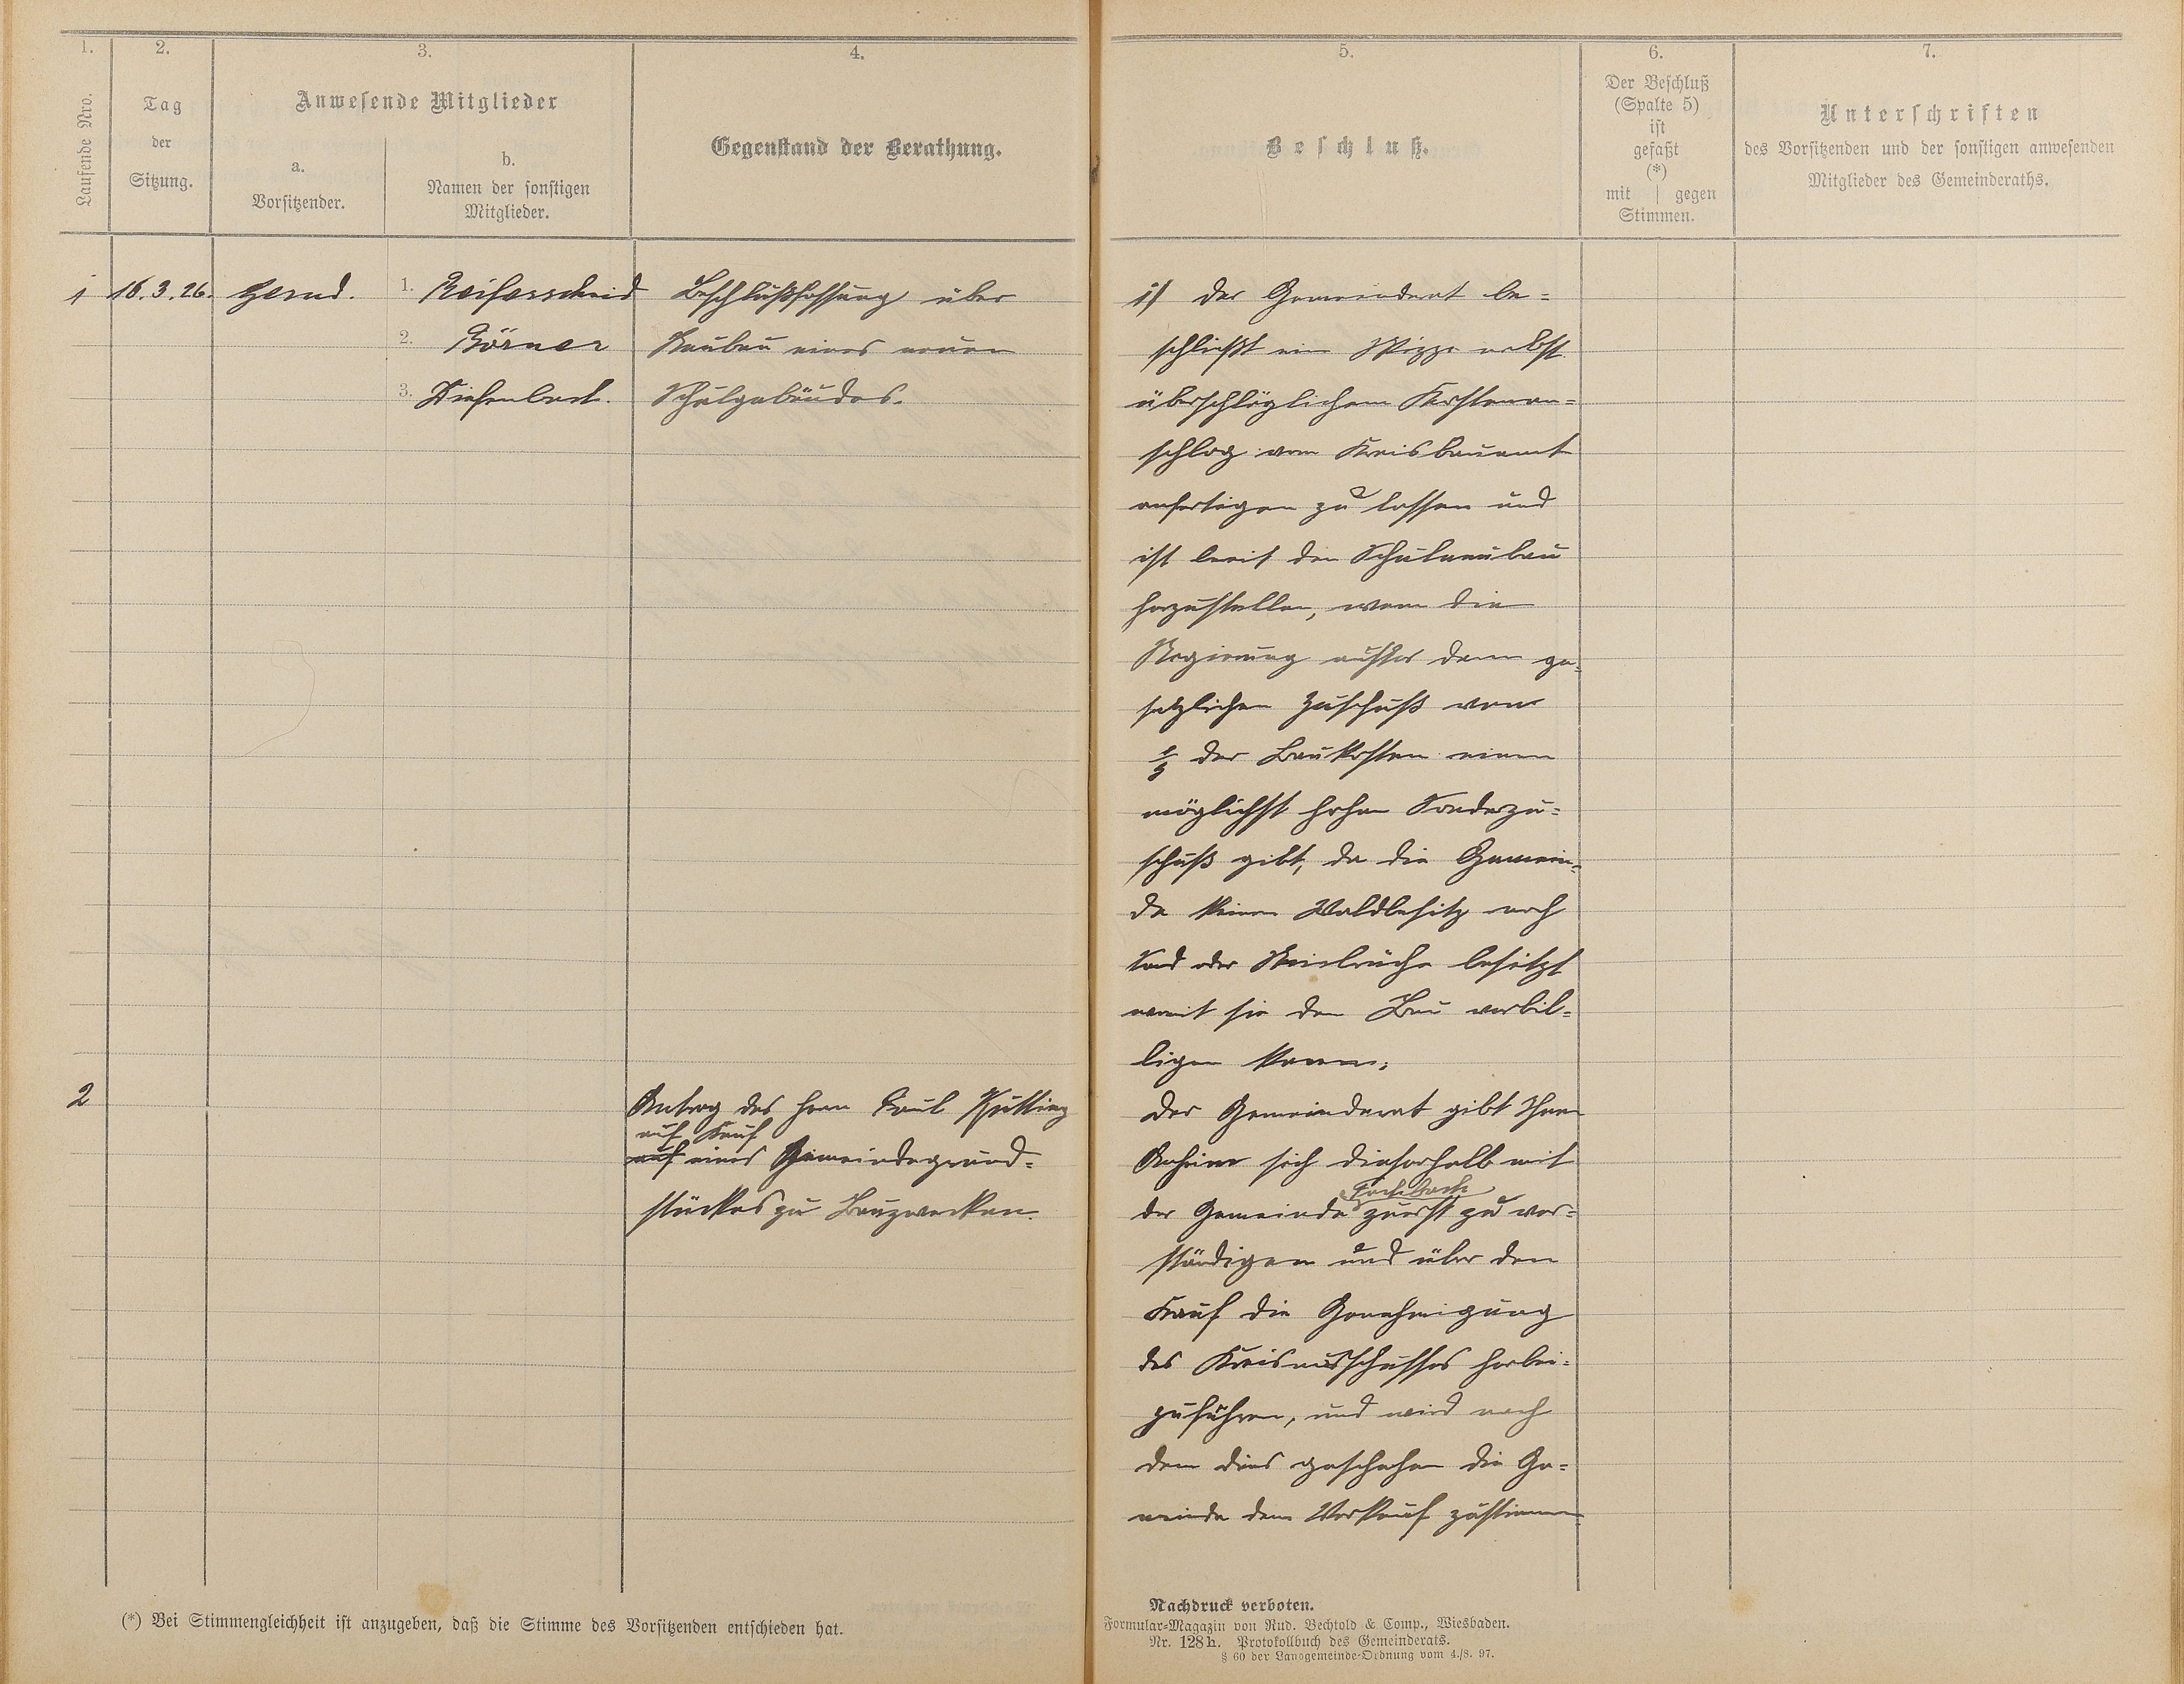 1.
Laufende Nro.
2.
Tag
der
Sitzung.
3.
Anwesende Mitglieder
a.
Vorsitzender.
b.
Namen der sonstigen
Mitglieder.
4.
Gegenstand der Berathung.
5.
Beschluß.
6.
Der Beschluß
(Spalte 5)
ist
gefaßt
(*)
mit | gegen
Stimmen.
7.
Unterschriften
des Vorsitzenden und der sonstigen anwesenden
Mitglieder des Gemeinderaths.
1
16.3.26.
1. Reifferscheid
2. Börner
3. Diefenbach.
Beschlußfassung über
Neubau eines neuen
Schulgebäudes.
1) Der Gemeinderat be=
schließt eine Skizze nebst
überschläglichem Kostenan=
schlag vom Kreisbauamt
anfertigen zu lassen und
ist bereit den Schulneubau
herzustellen, wenn die
Regierung außer dem ge=
setzlichen Zuschuß von
1/3 der Baukosten einen
möglichst hohen Sonderzu=
schuß gibt, da die Gemein=
de keinen Waldbesitz noch
Sand oder Steinbrüche besitzt
womit sie den Bau verbil=
ligen kann.
2
Antrag des Herrn Paul
auf Kauf
auf eines Gemeindegrund=
stückes zu Bauzwecken.
Der Gemeinderat gibt Ihm
Anheim sich dieserhalb mit
der Gemeinde Fachbach zuerst zu ver=
ständigen und über den
Kauf die Genehmigung
des Kreisausschusses herbei=
zuführen, und wird nach
dem dies geschehen die Ge=
meinde dem Verkauf zustimmen
(*) Bei Stimmengleichheit ist anzugeben, daß die Stimme des Vorsitzenden entschieden hat.
Nachdruck verboten.
Formular-Magazin von Rud. Bechtold & Comp., Wiesbaden.
Nr. 128 h. Protokollbuch des Gemeinderats.
§ 60 der Landgemeinde-Ordnung vom 4./8. 97.